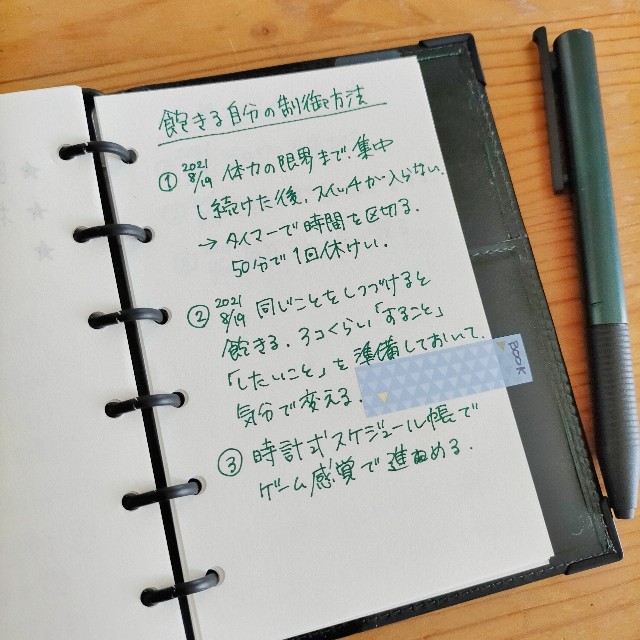 飽きる自分の制御方法
① 2021 8/19 体力の限界まで集中
し続けた後、スイッチが入らない。
→ タイマーで時間を区切る。
50分で1回休けい。
② 2021 8/19 同じことをしつづけると
飽きる。3コくらい「すること」
「したいこと」を準備しておいて、
気分で変える。
BOOK
③ 時計式スケジュール帳で
ゲーム感覚で進める。